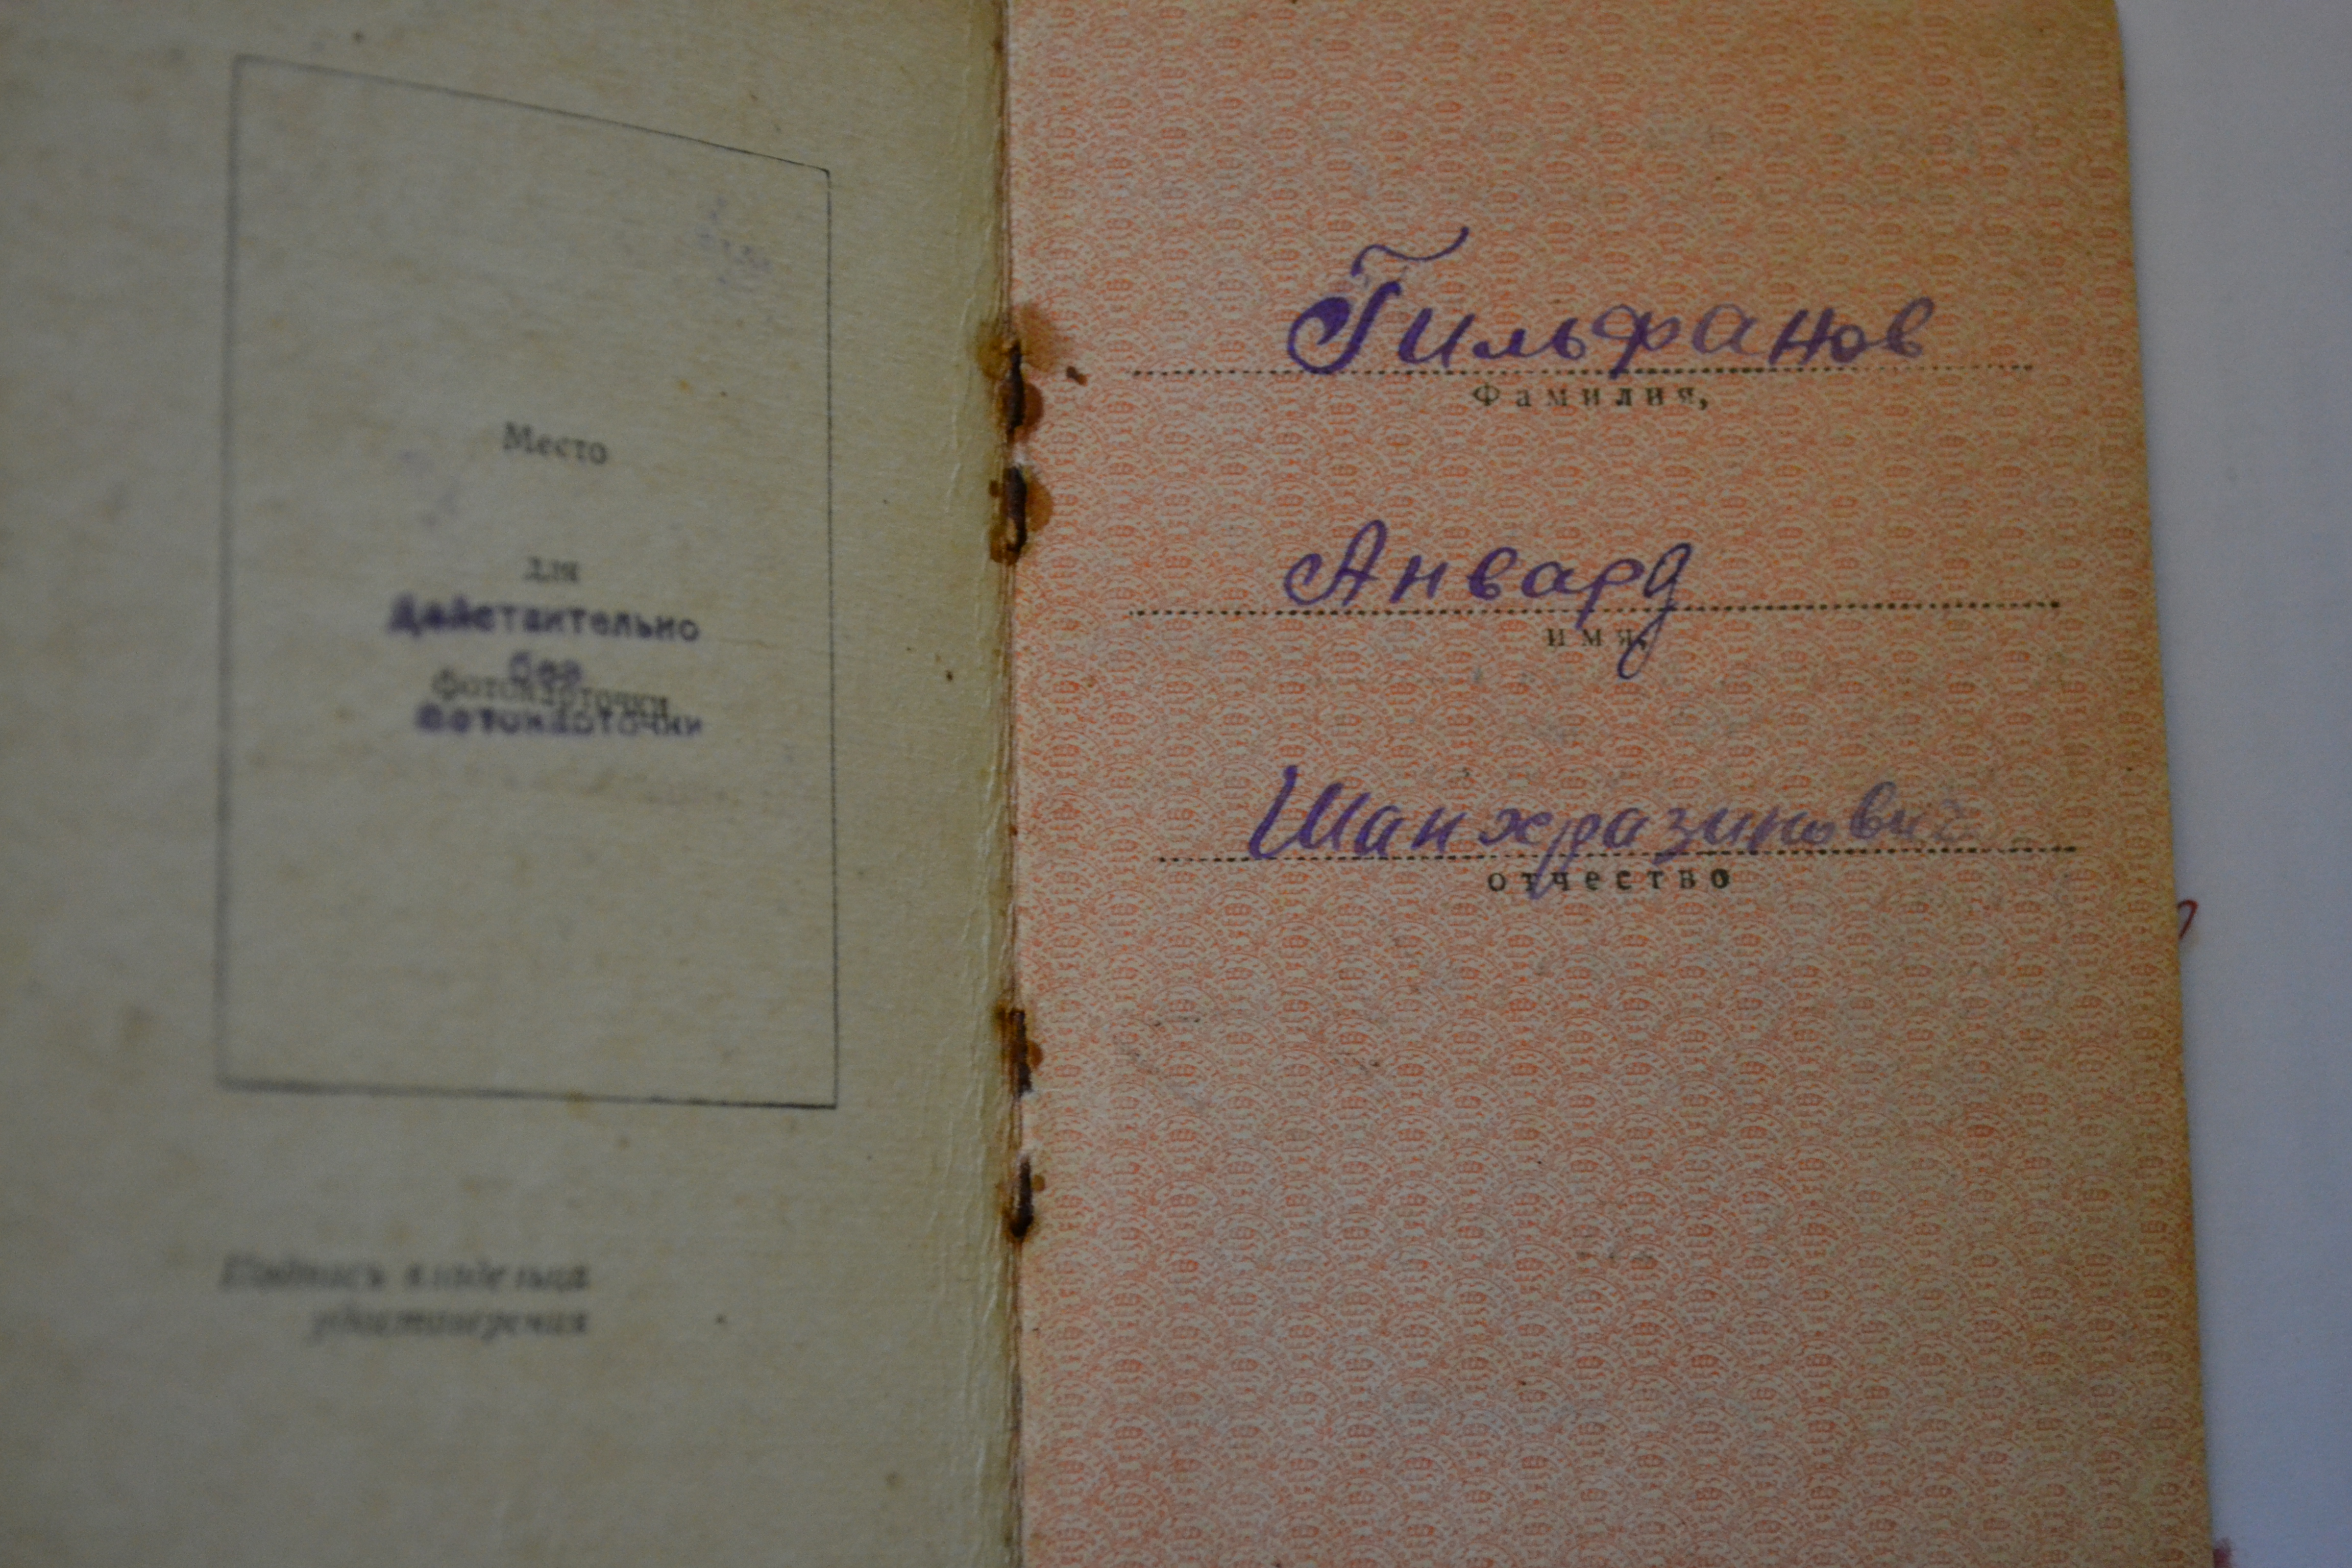 Место
для
Действительно
без
фотокарточки
фотокарточки
Подпись владельца
удостоверения
Гильфанов
Фамилия,
Анвард
имя,
Шанхразинович
отчество